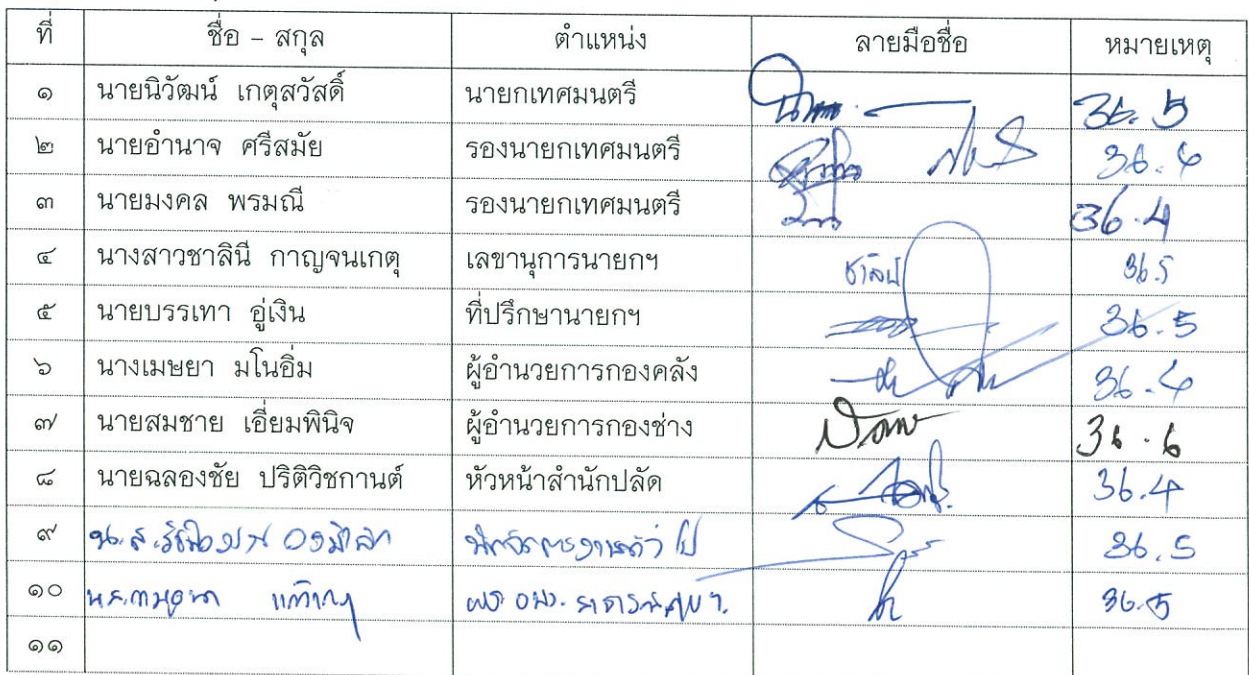 ที่ ชื่อ - สกุล ตำแหน่ง ลายมือชื่อ หมายเหตุ
๑ นายนิวัฒน์ เกตุสวัสดิ์ นายกเทศมนตรี 36.5
๒ นายอำนาจ ศรีสมัย รองนายกเทศมนตรี 36.4
๓ นายมงคล พรมณี รองนายกเทศมนตรี 36.4
๔ นางสาวชาลินี กาญจนเกตุ เลขานุการนายกฯ ชาลินี 36.5
๕ นายบรรเทา อู่เงิน ที่ปรึกษานายกฯ 36.5
๖ นางเมษยา มโนอิ่ม ผู้อำนวยการกองคลัง 36.4
๗ นายสมชาย เอี่ยมพินิจ ผู้อำนวยการกองช่าง 36.6
๘ นายฉลองชัย ปริติวิชกานต์ หัวหน้าสำนักปลัด 36.4
๙ น.ส. นักจัดการงานทั่วไป 36.5
๑๐ 36.5
๑๑